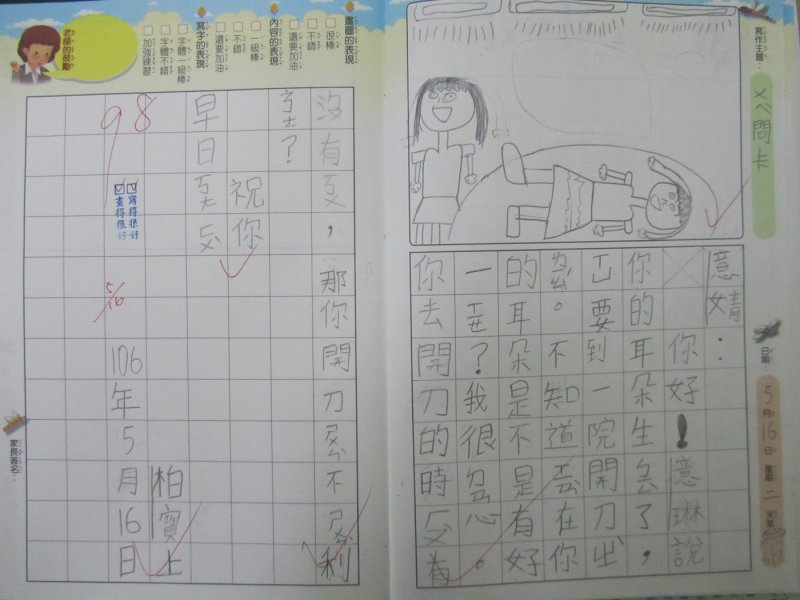 寫作主題:
ㄨㄟˋ問卡
日期:
5月16日 星期二 天氣
憶婧:
你好!憶琳說
你的耳朵生了,
要到一院開刀
。不知道在你
的耳朵是不是有好
一?我很心。
你去開刀的時有
沒有,那你開刀不利
?
祝你
早日
柏寶上
106年5月16日
98
寫得很好
畫得很好
5/16
畫圖的表現
很棒
不錯
還要加油
內容的表現
一級棒
不錯
還要加油
寫字的表現
字體一級棒
字體不錯
加強練習
老師的鼓勵
家長簽名: